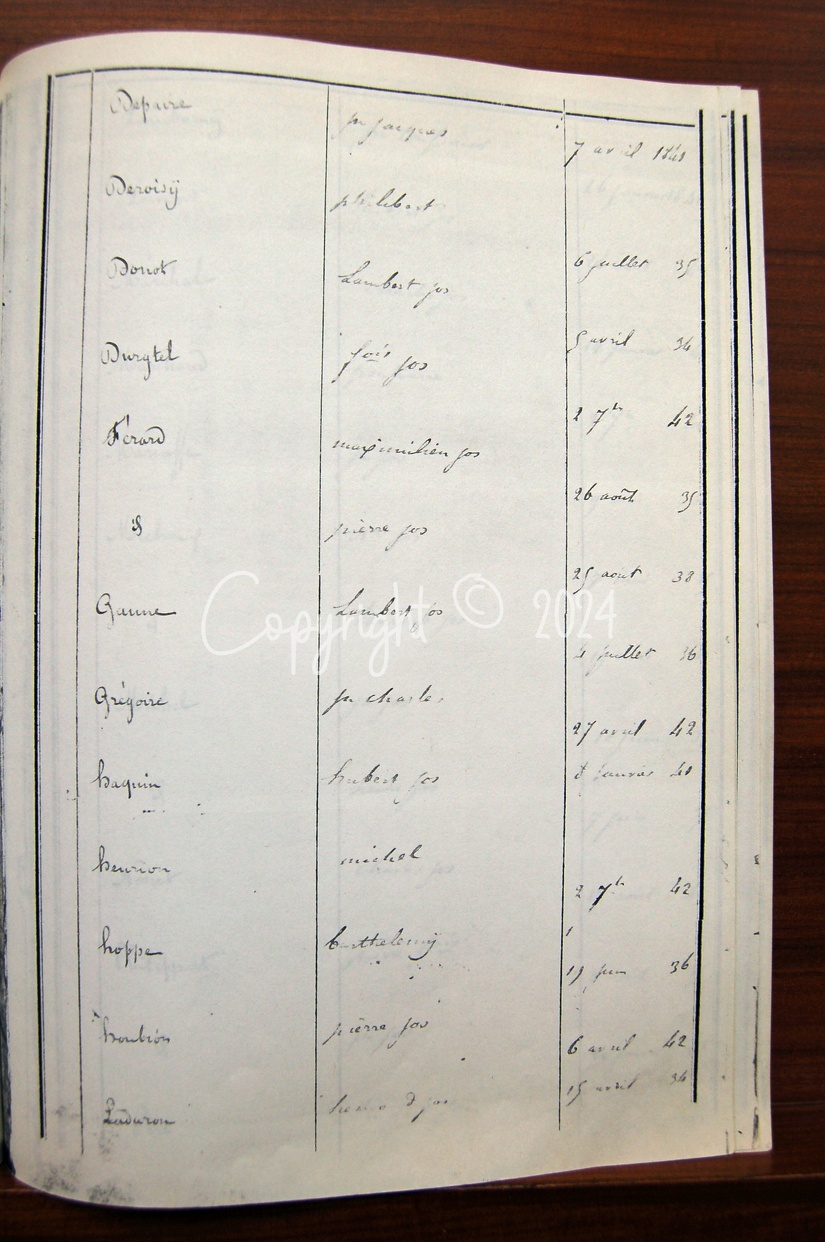 Depaire jn jacques 7 avril 1841
Deroisÿ philibert 6 juillet 35
Donot Lambert jos 5 avril 34
Durytel fois jos 2 7b 42
Férard maximilien jos 26 août 35
id pierre jos 25 aout 38
Ganne Lambert jos 4 juillet 36
Copyright © 2024
Grégoire jn charles 27 avril 42
haquin hubert jos janvier 40
henrion michel 2 7b 42
hoppe barthelemÿ 19 juin 36
houbion pierre jos 6 avril 42
Laduron jos 15 avril 34